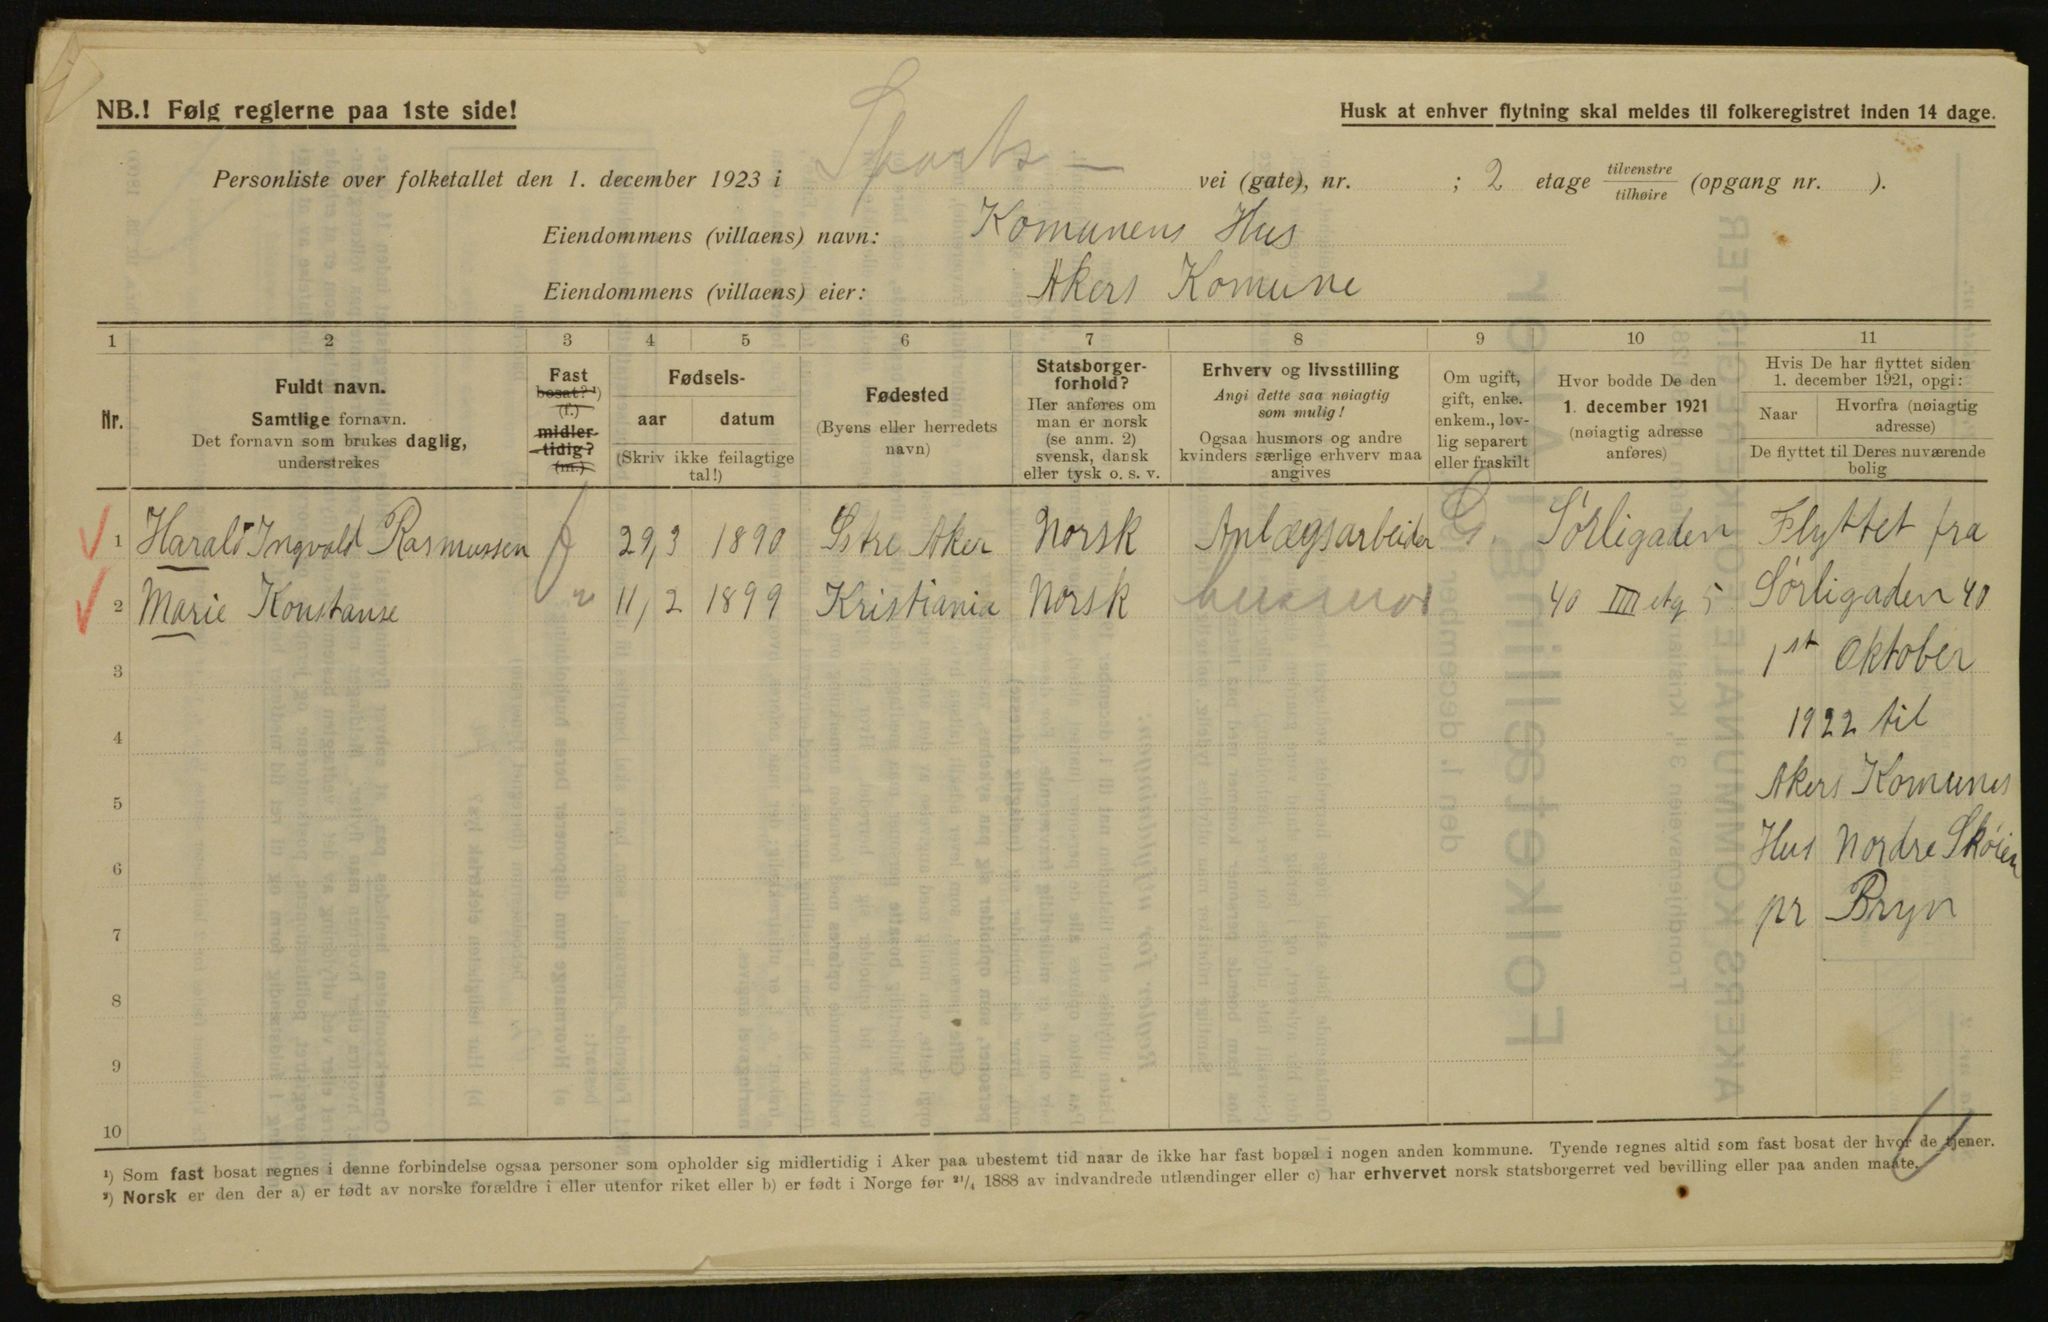 NB.! Følg reglerne paa 1ste side!
Husk at enhver flytning skal meldes til folkeregistret inden 14 dage.
Personliste over folketallet den 1. december 1923 i Sports- vei (gate), nr. ; 2 etage tilvenstre tilhøire (opgang nr. ).
Eiendommens (villaens) navn: Komunens Hus
Eiendommens (villaens) eier: Akers Komune
1 2 3 4 5 6 7 8 9 10 11
Nr.
Fuldt navn.
Samtlige fornavn.
Det fornavn som brukes daglig,
understrekes
Fast
bosat? ¹)
(f.)
midler-
tidig?
(m.)
Fødsels-
aar datum
(Skriv ikke feilagtige
tal!)
Fødested
(Byens eller herredets
navn)
Statsborger-
forhold?
Her anføres om
man er norsk
(se anm. 2)
svensk, dansk
eller tysk o. s. v.
Erhverv og livsstilling
Angi dette saa nøiagtig
som mulig!
Ogsaa husmors og andre
kvinders særlige erhverv maa
angives
Om ugift,
gift, enke.
enkem., lov-
lig separert
eller fraskilt
Hvor bodde De den
1. december 1921
(nøiagtig adresse
anføres)
Hvis De har flyttet siden
1. december 1921, opgi:
Naar Hvorfra (nøiagtig
adresse)
De flyttet til Deres nuværende
bolig
1 Harald Ingvald Rasmussen f 29,3 1890 Østre Aker Norsk Anlægsarbeider G. Sørligaden Flyttet fra
2 Marie Konstanse " 11/2 1899 Kristiania Norsk husmor 40 IIII etg 5 Sørligaden 40
3 1st Oktober
4 1922 til
5 Akers Komunes
6 Hus Nordre Skøien
7 pr Bryn
8
9
10
¹) Som fast bosat regnes i denne forbindelse ogsaa personer som opholder sig midlertidig i Aker paa ubestemt tid naar de ikke har fast bopæl i nogen anden kommune. Tyende regnes altid som fast bosat der hvor de tjener.
²) Norsk er den der a) er født av norske forældre i eller utenfor riket eller b) er født i Norge før ²¹/₄ 1888 av indvandrede utlændinger eller c) har erhvervet norsk statsborgerret ved bevilling eller paa anden maate.